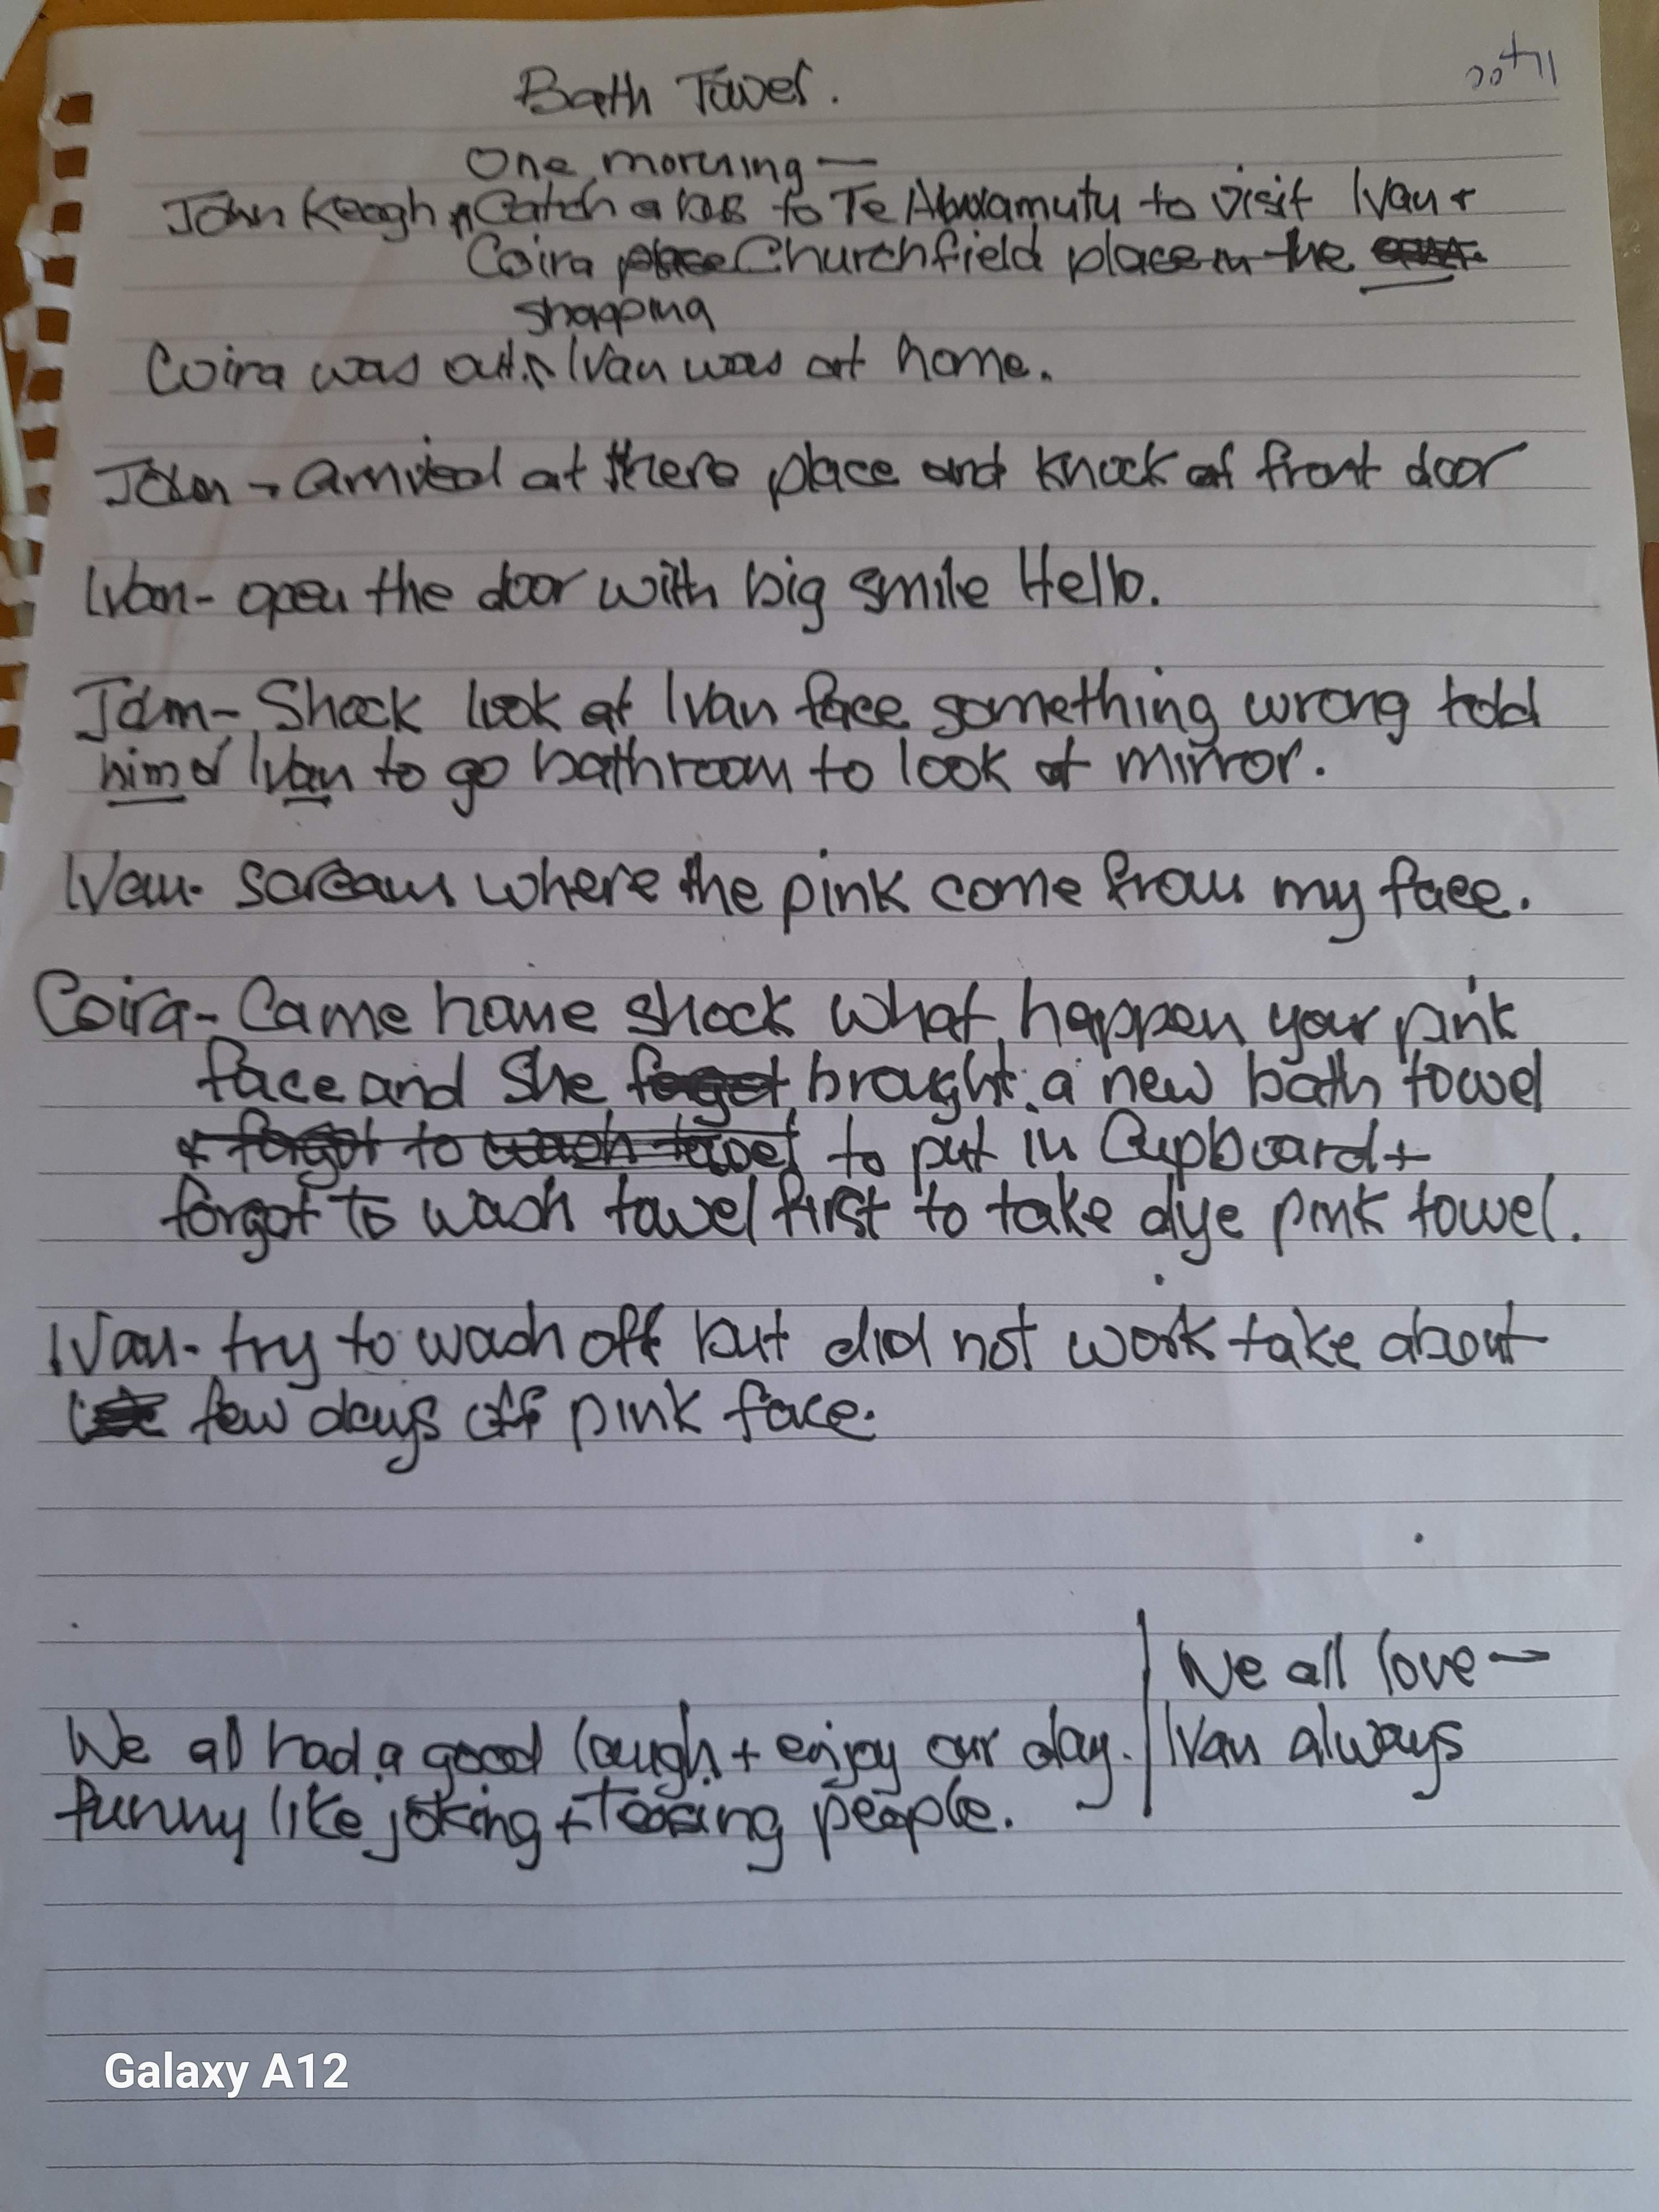 Bath Towel.
One morning —
John Keogh Catch a bus to Te Awamutu to visit Ivan +
Coira Churchfield place in the
shopping
Coira was out. Ivan was at home.
John - arrived at there place and knock at front door
Ivan - open the door with big smile Hello.
John - Shock look at Ivan face something wrong told
him of Ivan to go bathroom to look at mirror.
Ivan - screams where the pink come from my face.
Coira - Came home shock what happen your pink
face and she forgot brought a new bath towel
+ forgot to wash towel to put in Cupboard +
forgot to wash towel first to take dye pink towel.
Ivan - try to wash off but did not work take about
few days off pink face.
We all love —
We all had a good laugh + enjoy our day. Ivan always
funny like joking + Teasing people.
Galaxy A12